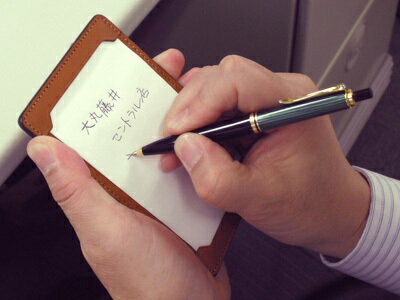 大丸藤井
セントラル店